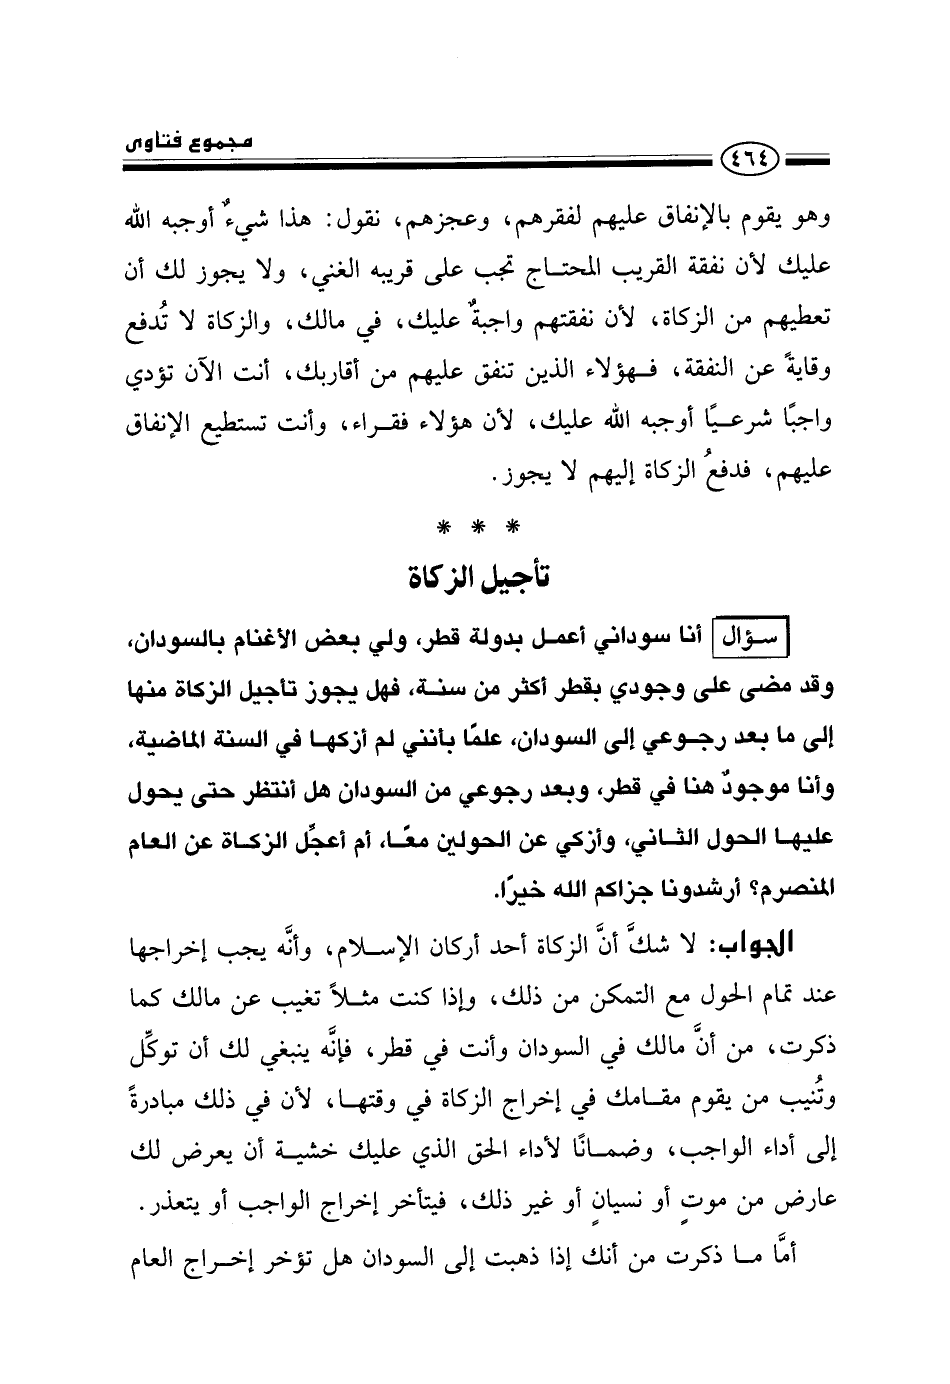 مجموع فتاوى
٤٦٤
وهو يقوم بالإنفاق عليهم لفقرهم، وعجزهم، نقول: هذا شيءٌ أوجبه الله
عليك لأن نفقة القريب المحتاج تجب على قريبه الغني، ولا يجوز لك أن
تعطيهم من الزكاة، لأن نفقتهم واجبةٌ عليك، في مالك، والزكاة لا تُدفع
وقايةً عن النفقة، فهؤلاء الذين تنفق عليهم من أقاربك، أنت الآن تؤدي
واجبًا شرعيًا أوجبه الله عليك، لأن هؤلاء فقراء، وأنت تستطيع الإنفاق
عليهم، فدفعُ الزكاة إليهم لا يجوز.
* * *
تأجيل الزكاة
سؤال أنا سوداني أعمل بدولة قطر، ولي بعض الأغنام بالسودان،
وقد مضى على وجودي بقطر أكثر من سنة، فهل يجوز تأجيل الزكاة منها
إلى ما بعد رجوعي إلى السودان، علمًا بأنني لم أزكها في السنة الماضية،
وأنا موجودٌ هنا في قطر، وبعد رجوعي من السودان هل أنتظر حتى يحول
عليها الحول الثاني، وأزكي عن الحولين معًا، أم أعجِّل الزكاة عن العام
المنصرم؟ أرشدونا جزاكم الله خيرًا.
الجواب: لا شكَّ أنَّ الزكاة أحد أركان الإسلام، وأنَّه يجب إخراجها
عند تمام الحول مع التمكن من ذلك، وإذا كنت مثلاً تغيب عن مالك كما
ذكرت، من أنَّ مالك في السودان وأنت في قطر، فإنَّه ينبغي لك أن توكِّل
وتُنيب من يقوم مقامك في إخراج الزكاة في وقتها، لأن في ذلك مبادرةً
إلى أداء الواجب، وضمانًا لأداء الحق الذي عليك خشية أن يعرض لك
عارض من موتٍ أو نسيانٍ أو غير ذلك، فيتأخر إخراج الواجب أو يتعذر.
أمَّا ما ذكرت من أنك إذا ذهبت إلى السودان هل تؤخر إخراج العام